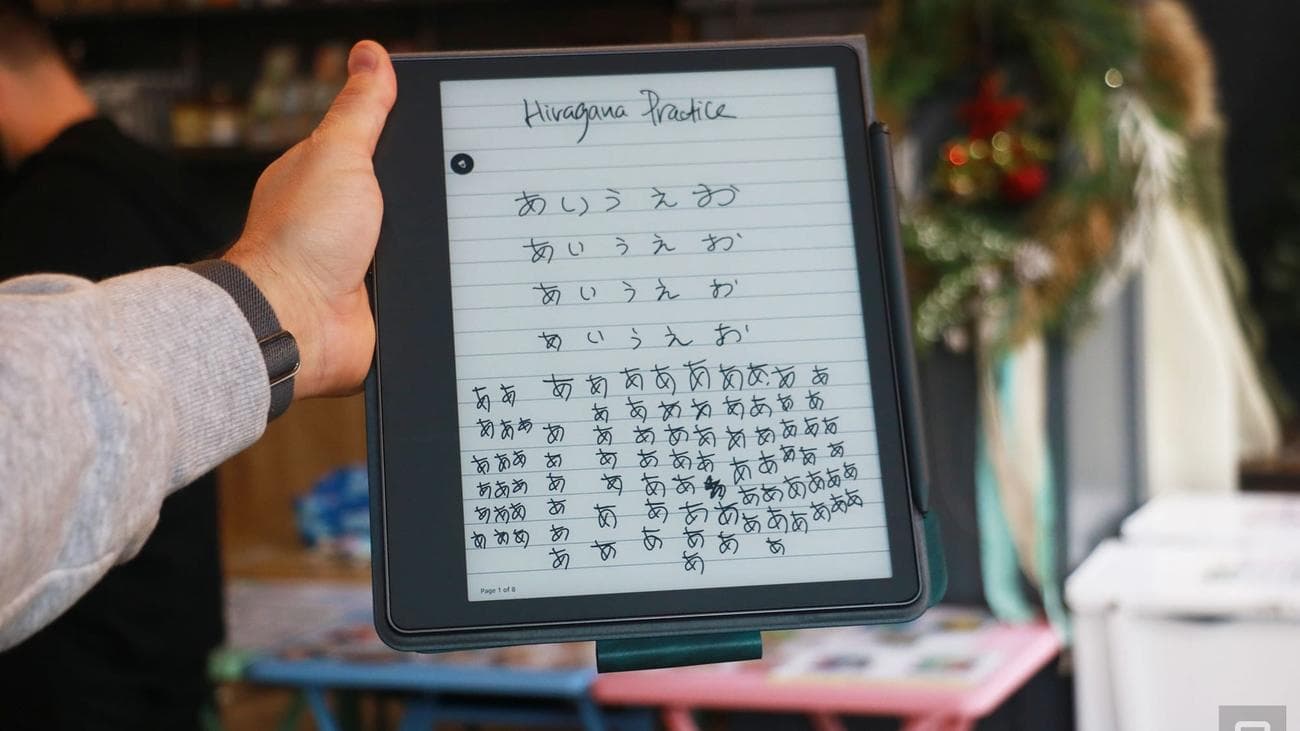 Hiragana Practice
あいうえお
あいうえお
あいうえお
あいうえお
ああ あ あ あ あ あ あ あ あ あ
あ あ あ あ あ あ あ
あああ あ あ あ あ あ あ あ あ あ あ
あああ あ あ あ あ あ あ あ あ あ
あああ あ あ あ あ あ あ あ あ あ あ
あああ あ あ あ あ あ あ あ あ あ あ あ
あああ あ あ あ あ あ あ
あ あ
Page 1 of 8